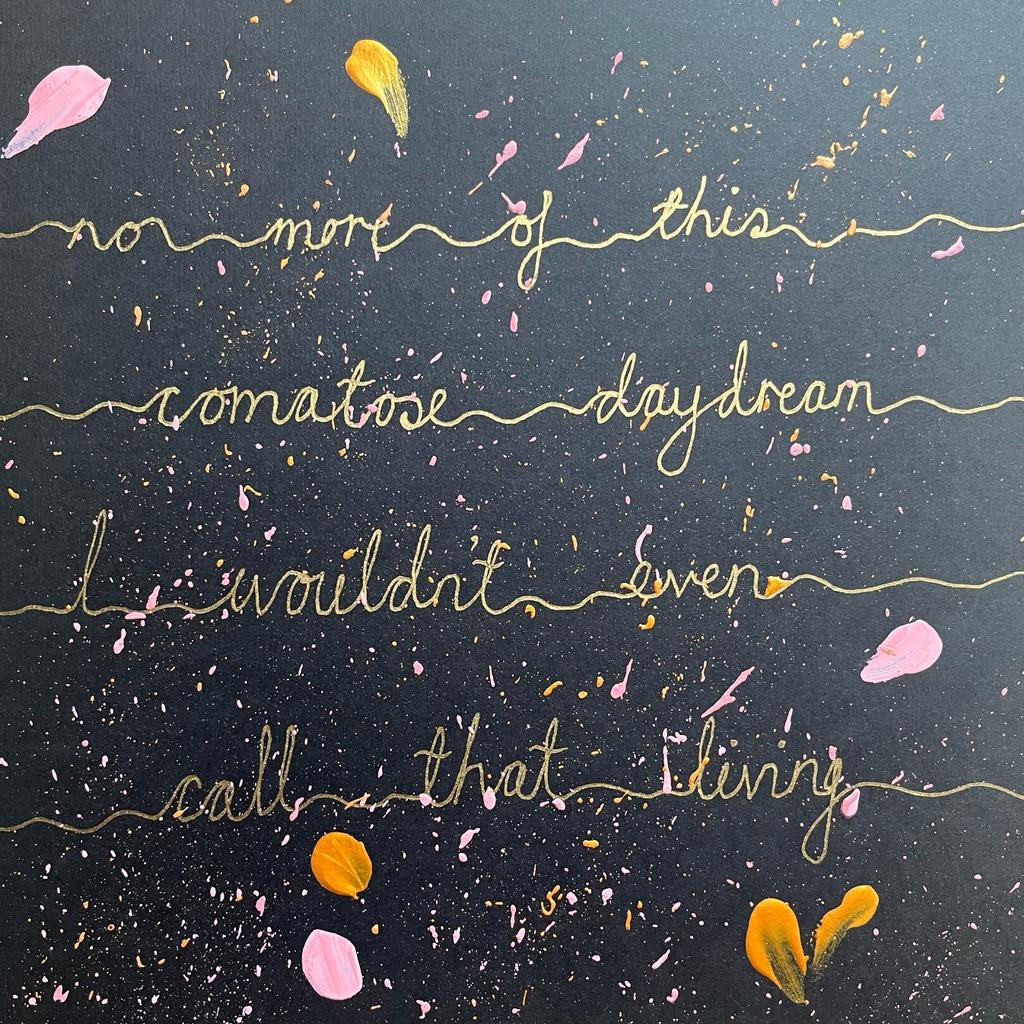 no more of this
comatose daydream
I wouldn't even
call that living